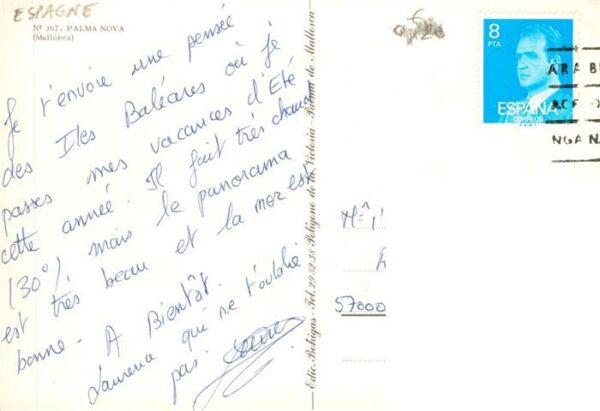 ESPAGNE
Nº 367. PALMA NOVA
(Mallorca)
Je t'envoie une pensée
des Iles Baléares où je
passes mes vacances d'Eté
cette année. Il fait très chaud
(30°), mais le panorama
est très beau et la mer est
bonne. A Bientôt.
Laurence qui ne t'oublie
pas.
Edic. Bohigas - Tel.
de la Victoria - Palma de Mallorca
8
PTA
ESPAÑA
CORREOS
ARA B
NGA NA
57000